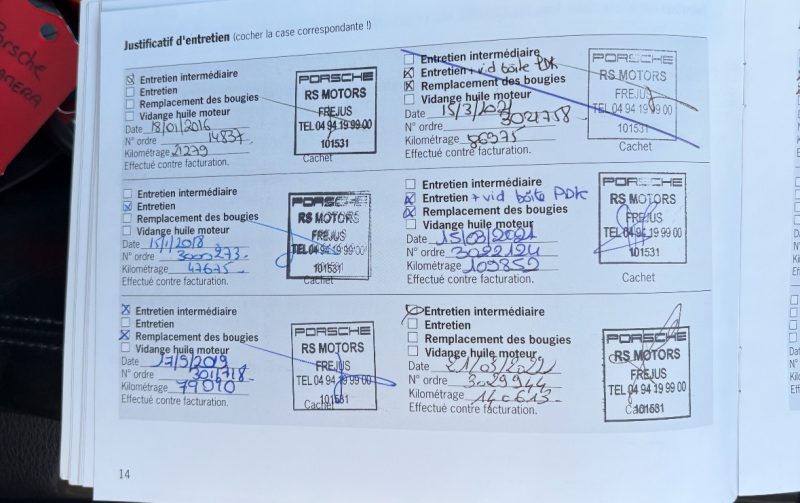 Porsche
Justificatif d'entretien (cocher la case correspondante !)
Entretien intermédiaire
Entretien
Remplacement des bougies
Vidange huile moteur
Date 18/01/2016
N° ordre 14837
Kilométrage 21279
Effectué contre facturation.
PORSCHE
RS MOTORS
FREJUS
TEL 04 94 19 99 00
101531
Entretien intermédiaire
Entretien + vid boîte PDK
Remplacement des bougies
Vidange huile moteur
Date 15/3/2021
N° ordre 3021758
Kilométrage
Effectué contre facturation.
PORSCHE
RS MOTORS
FREJUS
TEL 04 94 19 99 00
101531
Cachet
Entretien intermédiaire
Entretien
Remplacement des bougies
Vidange huile moteur
Date 15/1/2018
N° ordre 3000273
Kilométrage 47675
Effectué contre facturation.
PORSCHE
RS MOTORS
FREJUS
TEL 04 94 19 99 00
101531
Entretien intermédiaire
Entretien + vid boîte PDK
Remplacement des bougies
Vidange huile moteur
Date 15/03/2021
N° ordre 3022124
Kilométrage 109852
Effectué contre facturation.
PORSCHE
RS MOTORS
FREJUS
TEL 04 94 19 99 00
101531
Cachet
Entretien intermédiaire
Entretien
Remplacement des bougies
Vidange huile moteur
Date 17/9/2019
N° ordre 3011718
Kilométrage 79090
Effectué contre facturation.
PORSCHE
RS MOTORS
FREJUS
TEL 04 94 19 99 00
101531
Cachet
Entretien intermédiaire
Entretien
Remplacement des bougies
Vidange huile moteur
Date 21/03/2022
N° ordre 3029944
Kilométrage 140613
Effectué contre facturation.
PORSCHE
RS MOTORS
FREJUS
TEL 04 94 19 99 00
101531
Cachet
14